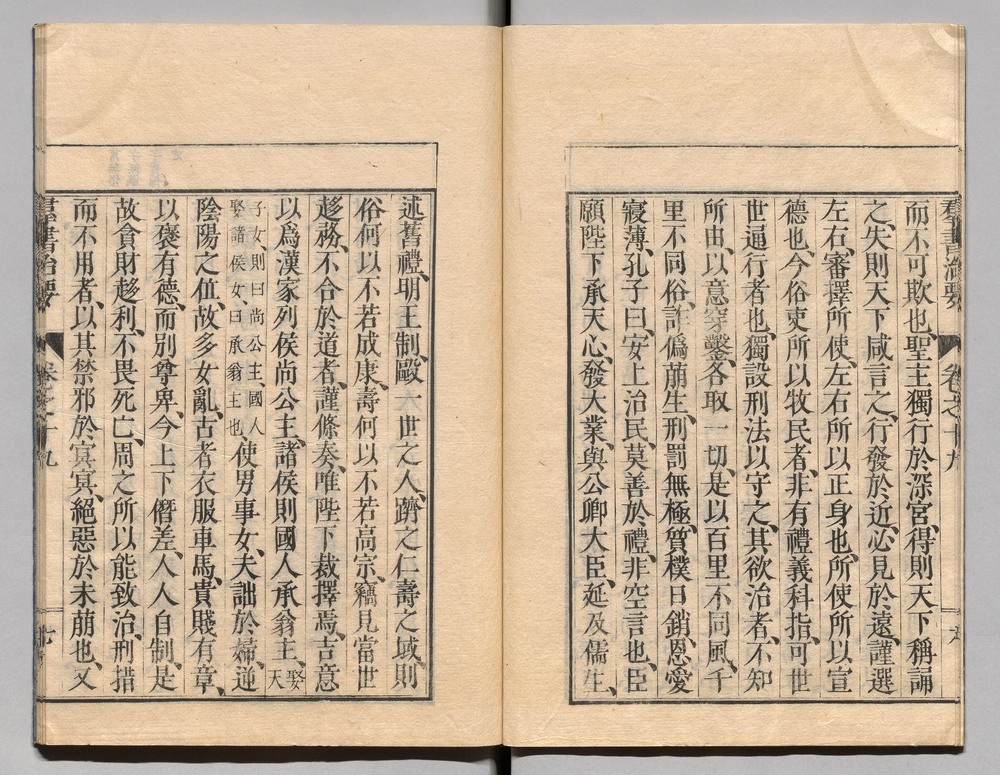 羣書治要 卷之十九 六
而不可欺也、聖主獨行於深宮、得則天下稱誦
之、失則天下咸言之、行發於近、必見於遠、謹選
左右、審擇所使、左右所以正身也、所使所以宣
德也、今俗吏所以牧民者、非有禮義科指、可世
世通行者也、獨設刑法以守之、其欲治者、不知
所由、以意穿鑿、各取一切、是以百里不同風、千
里不同俗、詐僞萠生、刑罰無極、質樸日銷、恩愛
寖薄、孔子曰、安上治民、莫善於禮、非空言也、臣
願陛下承天心、發大業、與公卿大臣、延及儒生、
述舊禮、明王制、毆六世之人、躋之仁壽之域、則
俗何以不若成康、壽何以不若高宗、竊見當世
趍務、不合於道者、謹條奏、唯陛下裁擇焉、吉意
以爲漢家列侯尚公主、諸侯則國人承翁主、娶天
子女、則曰尚公主、國人
娶諸侯女、曰承翁主也、使男事女、夫詘於婦、逆
陰陽之位、故多女亂、古者衣服車馬、貴賤有章、
以襃有德、而別尊卑、今上下僭差、人人自制、是
故貪財趍利、不畏死亡、周之所以能致治、刑措
而不用者、以其禁邪於冥冥、絕惡於未萠也、又
羣書治要 卷之十九 七